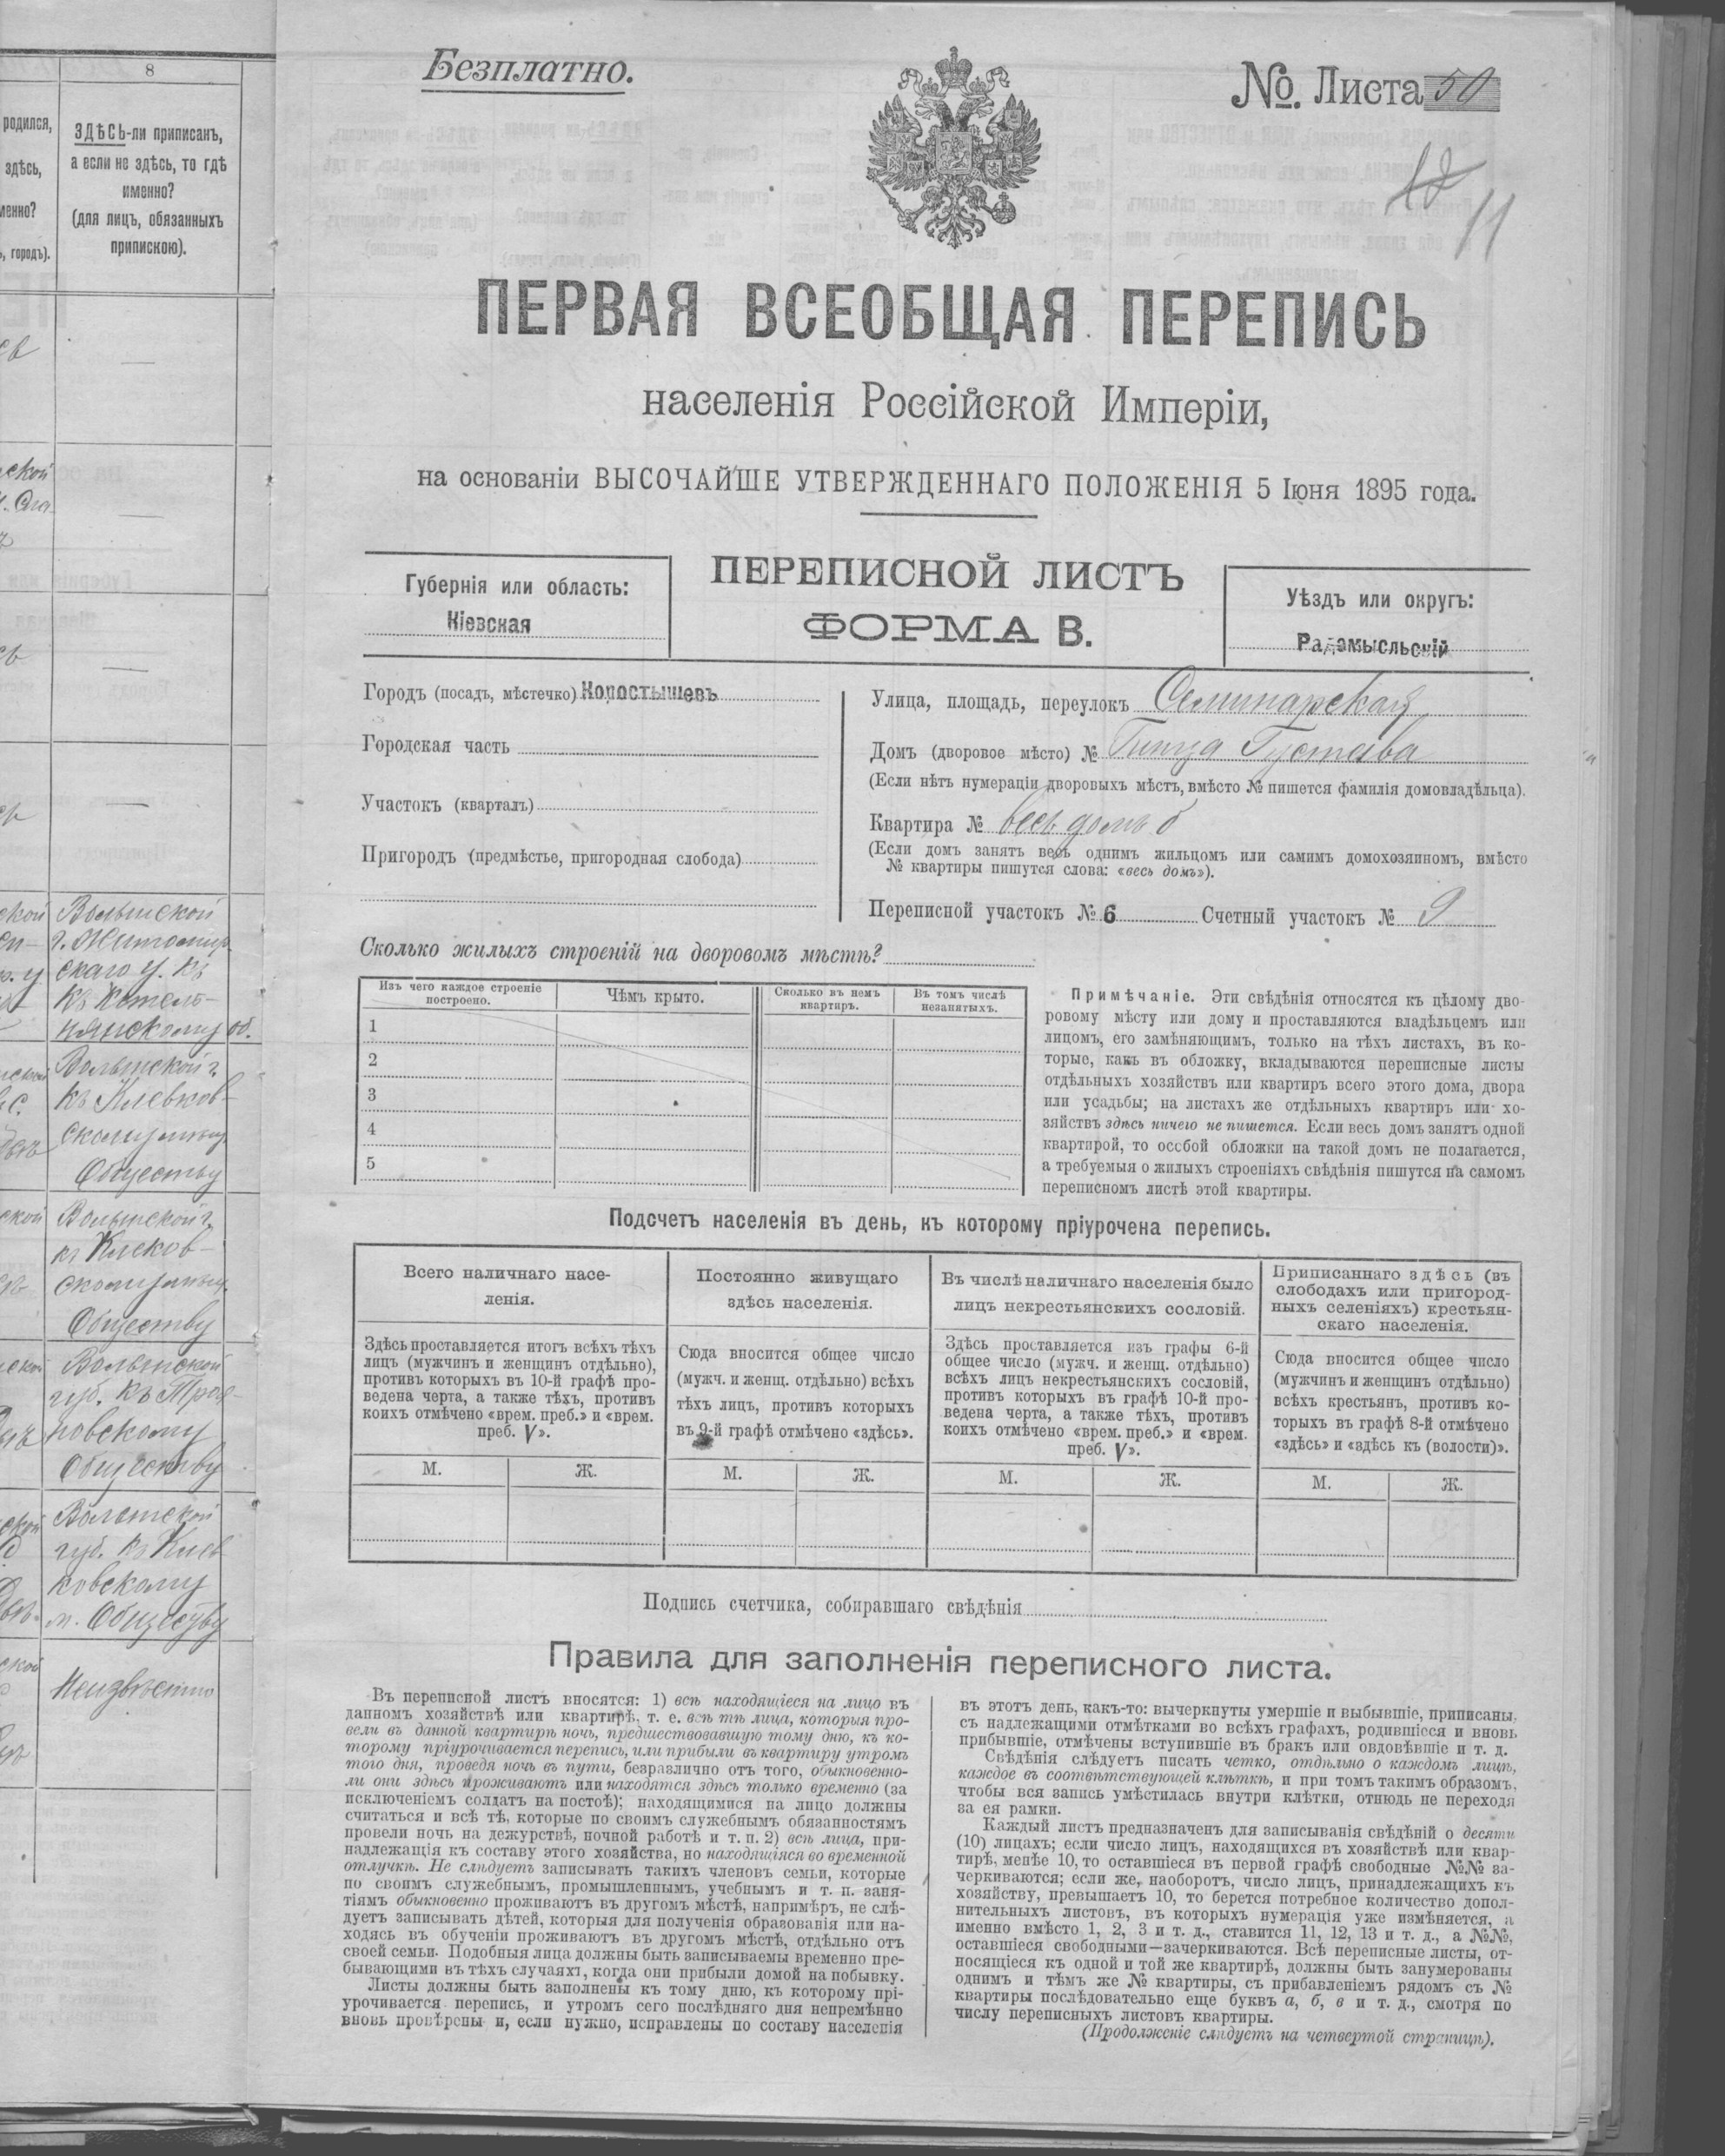 8
родился,
здѣсь,
менно?
ь, городъ).
ЗДѢСЬ-ли приписанъ,
а если не здѣсь, то гдѣ
именно?
(для лицъ, обязанныхъ
припискою).
Волынской
г. Житомир-
скаго у. къ
къ Котель-
нянскому об.
Волынской г.
Обществу
Волынской г.
Обществу
Волынской
губ. къ Троя-
новскому
Обществу
Волынской
губ. къ Клев
ковскому
м. Обществу
Неизвѣстно
Безплатно.
№. Листа 50
11
ПЕРВАЯ ВСЕОБЩАЯ ПЕРЕПИСЬ
населенія Россійской Имперіи,
на основаніи ВЫСОЧАЙШЕ УТВЕРЖДЕННАГО ПОЛОЖЕНІЯ 5 Іюня 1895 года.
Губернія или область:
Кіевская
ПЕРЕПИСНОЙ ЛИСТЪ
ФОРМА В.
Уѣздъ или округъ:
Радомысльскій
Городъ (посадъ, мѣстечко) Коростышевъ
Городская часть
Участокъ (кварталъ)
Пригородъ (предмѣстье, пригородная слобода)
Улица, площадь, переулокъ Семинарская
Домъ (дворовое мѣсто) № Гинца Густава
(Если нѣтъ нумераціи дворовыхъ мѣстъ, вмѣсто № пишется фамилія домовладѣльца).
Квартира № весь домъ б
(Если домъ занятъ весь однимъ жильцомъ или самимъ домохозяиномъ, вмѣсто
№ квартиры пишутся слова: «весь домъ»).
Переписной участокъ № 6 Счетный участокъ № 9
Сколько жилыхъ строеній на дворовомъ мѣстѣ?
Изъ чего каждое строеніе
построено.
Чѣмъ крыто.
Сколько въ немъ
квартиръ.
Въ томъ числѣ
незанятыхъ.
1
2
3
4
5
Примѣчаніе. Эти свѣдѣнія относятся къ цѣлому дво-
ровому мѣсту или дому и проставляются владѣльцемъ или
лицомъ, его замѣняющимъ, только на тѣхъ листахъ, въ ко-
торые, какъ въ обложку, вкладываются переписные листы
отдѣльныхъ хозяйствъ или квартиръ всего этого дома, двора
или усадьбы; на листахъ же отдѣльныхъ квартиръ или хо-
зяйствъ здѣсь ничего не пишется. Если весь домъ занятъ одной
квартирой, то особой обложки на такой домъ не полагается,
а требуемыя о жилыхъ строеніяхъ свѣдѣнія пишутся на самомъ
переписномъ листѣ этой квартиры.
Подсчетъ населенія въ день, къ которому пріурочена перепись.
Всего наличнаго насе-
ленія.
Здѣсь проставляется итогъ всѣхъ тѣхъ
лицъ (мужчинъ и женщинъ отдѣльно),
противъ которыхъ въ 10-й графѣ про-
ведена черта, а также тѣхъ, противъ
коихъ отмѣчено «врем. преб.» и «врем.
преб. V».
М. Ж.
Постоянно живущаго
здѣсь населенія.
Сюда вносится общее число
(мужч. и женщ. отдѣльно) всѣхъ
тѣхъ лицъ, противъ которыхъ
въ 9-й графѣ отмѣчено «здѣсь».
М. Ж.
Въ числѣ наличнаго населенія было
лицъ некрестьянскихъ сословій.
Здѣсь проставляется изъ графы 6-й
общее число (мужч. и женщ. отдѣльно)
всѣхъ лицъ некрестьянскихъ сословій,
противъ которыхъ въ графѣ 10-й про-
ведена черта, а также тѣхъ, противъ
коихъ отмѣчено «врем. преб.» и «врем.
преб. V».
М. Ж.
Приписаннаго здѣсь (въ
слободахъ или пригород-
ныхъ селеніяхъ) крестьян-
скаго населенія.
Сюда вносится общее число
(мужчинъ и женщинъ отдѣльно)
всѣхъ крестьянъ, противъ ко-
торыхъ въ графѣ 8-й отмѣчено
«здѣсь» и «здѣсь къ (волости)».
М. Ж.
Подпись счетчика, собиравшаго свѣдѣнія
Правила для заполненія переписного листа.
Въ переписной листъ вносятся: 1) всѣ находящіеся на лицо въ
данномъ хозяйствѣ или квартирѣ, т. е. всѣ тѣ лица, которыя про-
вели въ данной квартирѣ ночь, предшествовавшую тому дню, къ ко-
торому пріурочивается перепись, или прибыли въ квартиру утромъ
того дня, проведя ночь въ пути, безразлично отъ того, обыкновенно-
ли они здѣсь проживаютъ или находятся здѣсь только временно (за
исключеніемъ солдатъ на постоѣ); находящимися на лицо должны
считаться и всѣ тѣ, которые по своимъ служебнымъ обязанностямъ
провели ночь на дежурствѣ, ночной работѣ и т. п. 2) всѣ лица, при-
надлежащія къ составу этого хозяйства, но находящіяся во временной
отлучкѣ. Не слѣдуетъ записывать такихъ членовъ семьи, которые
по своимъ служебнымъ, промышленнымъ, учебнымъ и т. п. заня-
тіямъ обыкновенно проживаютъ въ другомъ мѣстѣ, напримѣръ, не слѣ-
дуетъ записывать дѣтей, которыя для полученія образованія или на-
ходясь въ обученіи проживаютъ въ другомъ мѣстѣ, отдѣльно отъ
своей семьи. Подобныя лица должны быть записываемы временно пре-
бывающими въ тѣхъ случаяхъ, когда они прибыли домой на побывку.
Листы должны быть заполнены къ тому дню, къ которому прі-
урочивается перепись, и утромъ сего послѣдняго дня непремѣнно
вновь провѣрены и, если нужно, исправлены по составу населенія
въ этотъ день, какъ-то: вычеркнуты умершіе и выбывшіе, приписаны,
съ надлежащими отмѣтками во всѣхъ графахъ, родившіеся и вновь
прибывшіе, отмѣчены вступившіе въ бракъ или овдовѣвшіе и т. д.
Свѣдѣнія слѣдуетъ писать четко, отдѣльно о каждомъ лицѣ,
каждое въ соотвѣтствующей клѣткѣ, и при томъ такимъ образомъ,
чтобы вся запись умѣстилась внутри клѣтки, отнюдь не переходя
за ея рамки.
Каждый листъ предназначенъ для записыванія свѣдѣній о десяти
(10) лицахъ; если число лицъ, находящихся въ хозяйствѣ или квар-
тирѣ, менѣе 10, то оставшіеся въ первой графѣ свободные №№ за-
черкиваются; если же, наоборотъ, число лицъ, принадлежащихъ къ
хозяйству, превышаетъ 10, то берется потребное количество допол-
нительныхъ листовъ, въ которыхъ нумерація уже измѣняется, а
именно вмѣсто 1, 2, 3 и т. д., ставится 11, 12, 13 и т. д., а №№,
оставшіеся свободными—зачеркиваются. Всѣ переписные листы, от-
носящіеся къ одной и той же квартирѣ, должны быть занумерованы
однимъ и тѣмъ же № квартиры, съ прибавленіемъ рядомъ съ №
квартиры послѣдовательно еще буквъ а, б, в и т. д., смотря по
числу переписныхъ листовъ квартиры.
(Продолженіе слѣдуетъ на четвертой страницѣ).